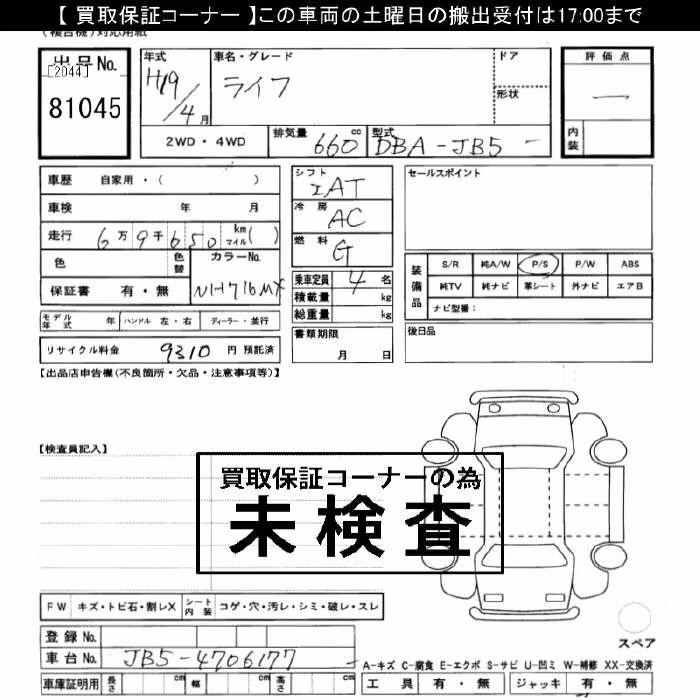 【 買取保証コーナー 】この車両の土曜日の搬出受付は17:00まで
(複合機)対応用紙
出品No.
[2044]
81045
年式
H19/4月
車名・グレード
ライフ
ドア
形状
評価点
一
内装
2WD・4WD
排気量 660 cc
型式 DBA-JB5-
車歴 自家用・( )
車検 年 月
走行 6万9千650 km マイル( )
色
色替
カラーNo.
NH716MX
保証書 有・無
モデル年式 年
ハンドル 左・右
ディーラー・並行
リサイクル料金 9310 円 預託済
シフト
IAT
冷房
AC
燃料
G
乗車定員 4 名
積載量 kg
総重量 kg
書類期限
月 日
セールスポイント
装備品
S/R 純A/W P/S P/W ABS
純TV 純ナビ 革シート 外ナビ エアB
ナビ型番:
後日品
【出品店申告欄(不良箇所・欠品・注意事項等)】
【検査員記入】
買取保証コーナーの為
未検査
FW キズ・トビ石・割レX
シート内装 コゲ・穴・汚レ・シミ・破レ・スレ
登録No.
車台No. JB5-4706177-
車庫証明用 長さ cm 幅 cm 高さ cm
スペア
A-キズ C-腐食 E-エクボ S-サビ U-凹ミ W-補修 XX-交換済
工具 有・無 ジャッキ 有・無